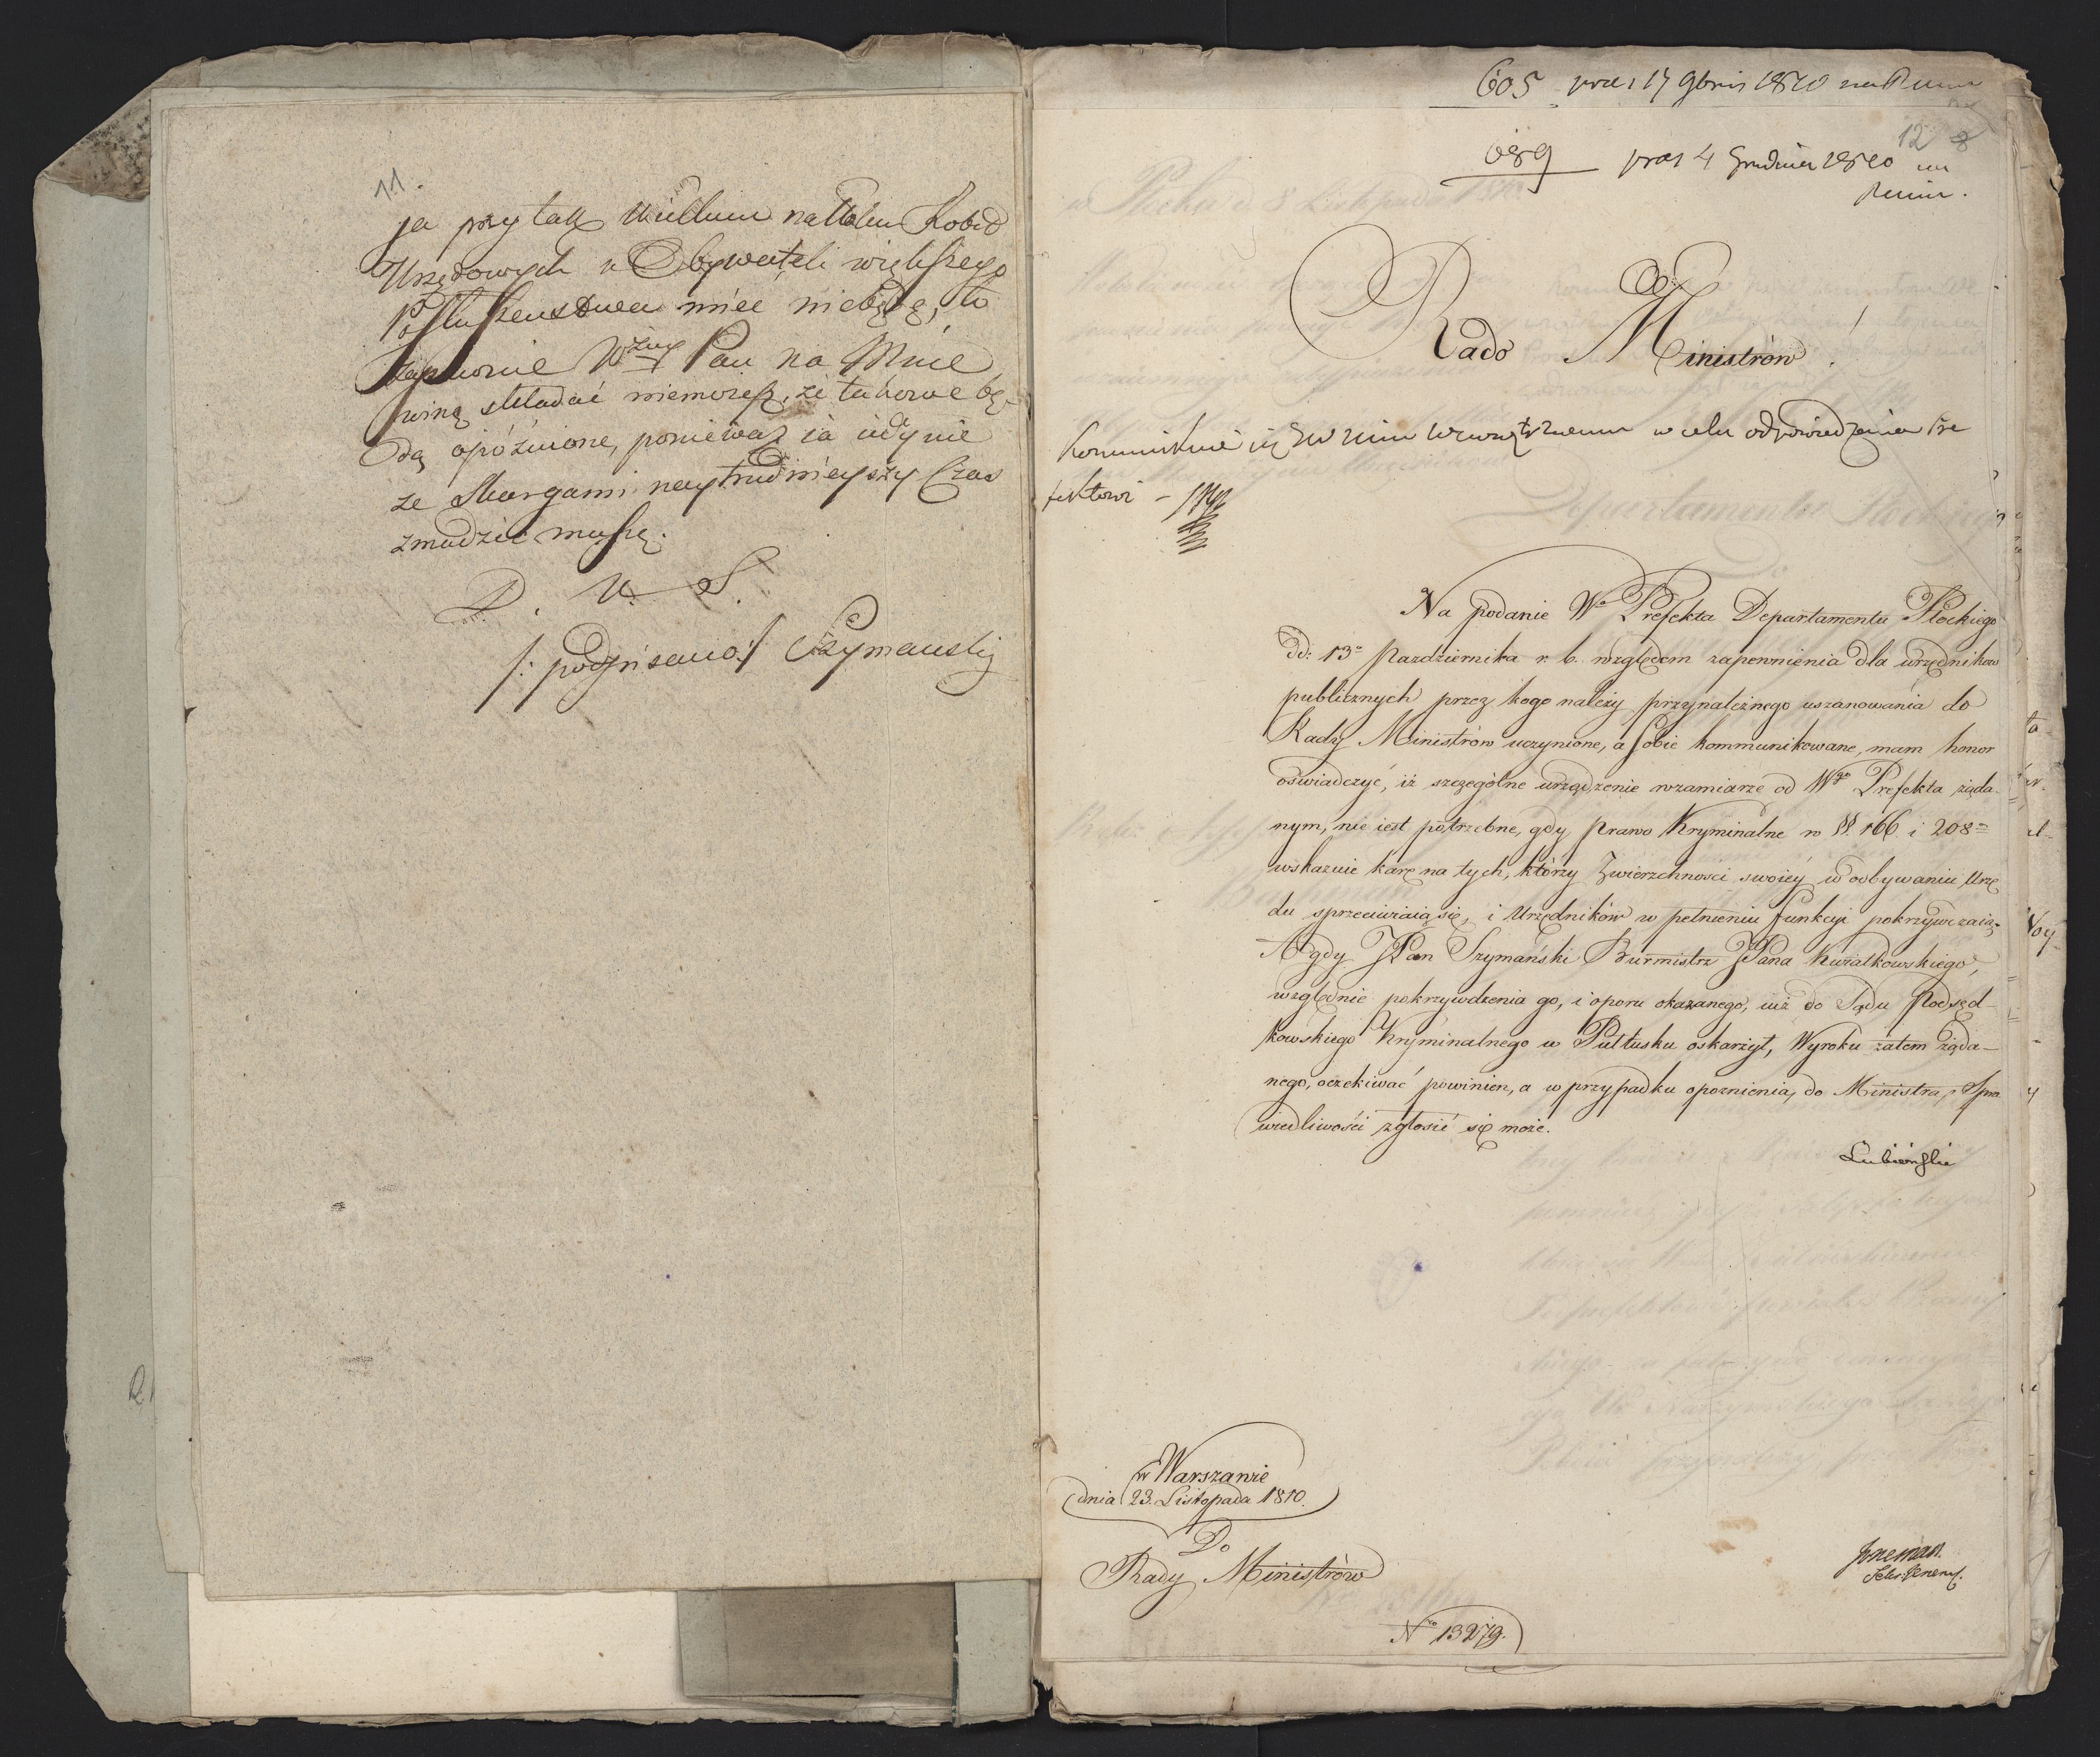 11.
ja przy tak Wielkim nattłoku Robót
Urzędowych u Obywateli większego
Posłuszeństwa mieć niebędę, to
zapewnie Wżny Pan na Mnie
winę składać niemożesz, że takowe bę-
dą opóźnione, ponieważ ia iedynie
ze Skargami naytrudnieyszy Czas
zmudzić muszę.
D. U. S.
/: podpisano :/ Szymański
605 pras 17 9bris 1810 na
689 pras 4 Grudnia 1810 na
12
Rado Ministrów!
Kommunikuie się Mnrowi Wewnętrznemu w celu odpowiedzenia Pre
fektowi –
Na podanie Wo Prefekta Departamentu Płockiego
dd: 13o Pazdziernika r. b. względem zapewnienia dla urzędnikow
publicznych przez kogo należy przynależnego uszanowania do
Rady Ministrów uczynione, a sobie kommunikowane, mam honor
oświadczyć, iż szczególne urządzenie w zamiarze od Wgo Prefekta żąda-
nym, nie iest potrzebne, gdy Prawo Kryminalne w §§. 166 i 208
wskazuie karę na tych, którzy Zwierzchności swoiéy w odbywaniu Urzę
du sprzeciwiaią się, i Urzędników w pełnieniu funkcyi pokrzywdzaią.
A gdy JPan Szymański Burmistrz JPana Kwiatkowskiego,
względnie pokrzywdzenia go, i oporu okazanego, iuż do Sądu Podsęd-
kowskiego Kryminalnego w Pułtusku oskarżył, Wyroku zatem żąda-
nego, oczekiwać powinien, a w przypadku opoznienia, do Ministra Spra
wiedliwości zgłosić się może.
Lubieński
w Warszawie
dnia 23. Listopada 1810.
Do
Rady Ministrów
Sekr: General.
No 13279.